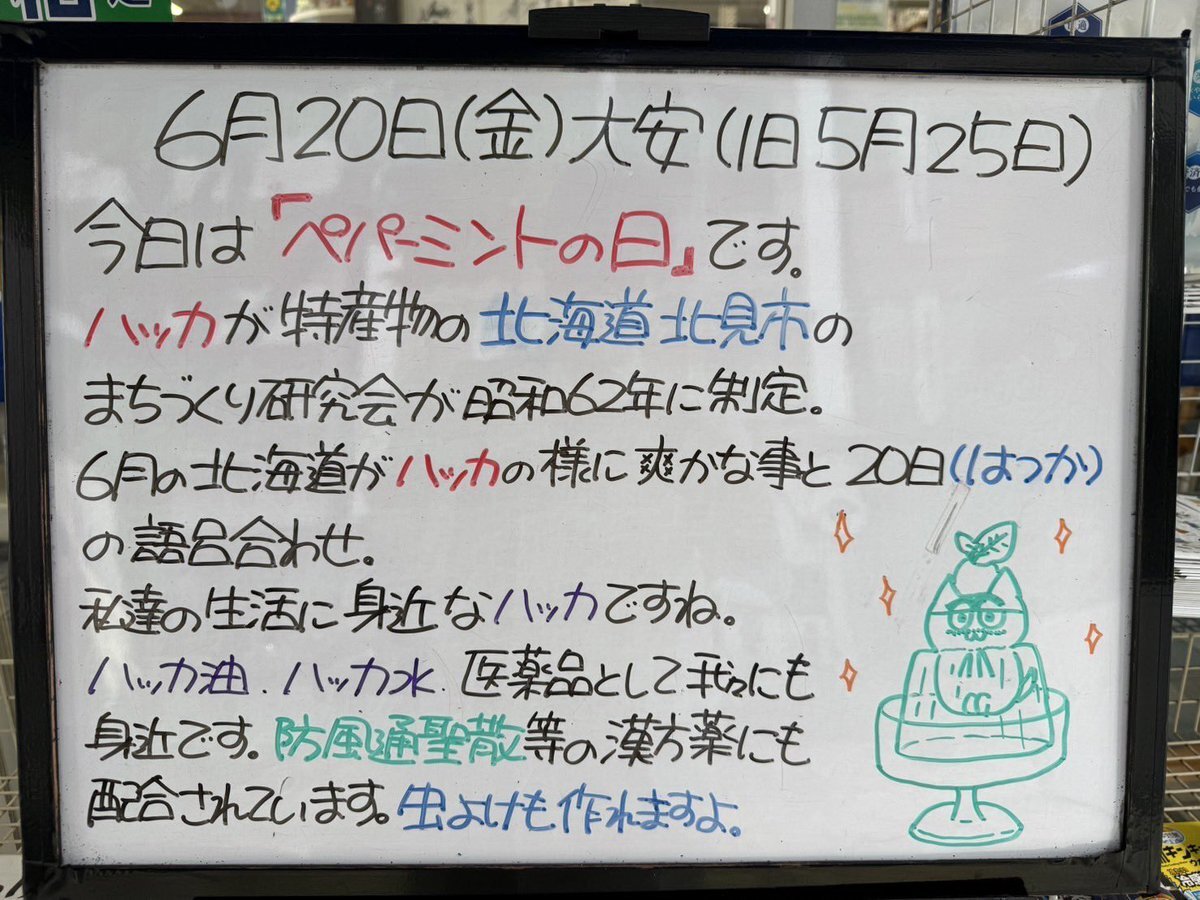 6月20日(金)大安(旧5月25日)
今日は『ペパーミントの日』です。
ハッカが特産物の北海道北見市の
まちづくり研究会が昭和62年に制定。
6月の北海道がハッカの様に爽かな事と20日(はっか)
の語呂合わせ。
私達の生活に身近なハッカですね。
ハッカ油、ハッカ水、医薬品として我々にも
身近です。防風通聖散等の漢方薬にも
配合されています。虫よけも作れますよ。